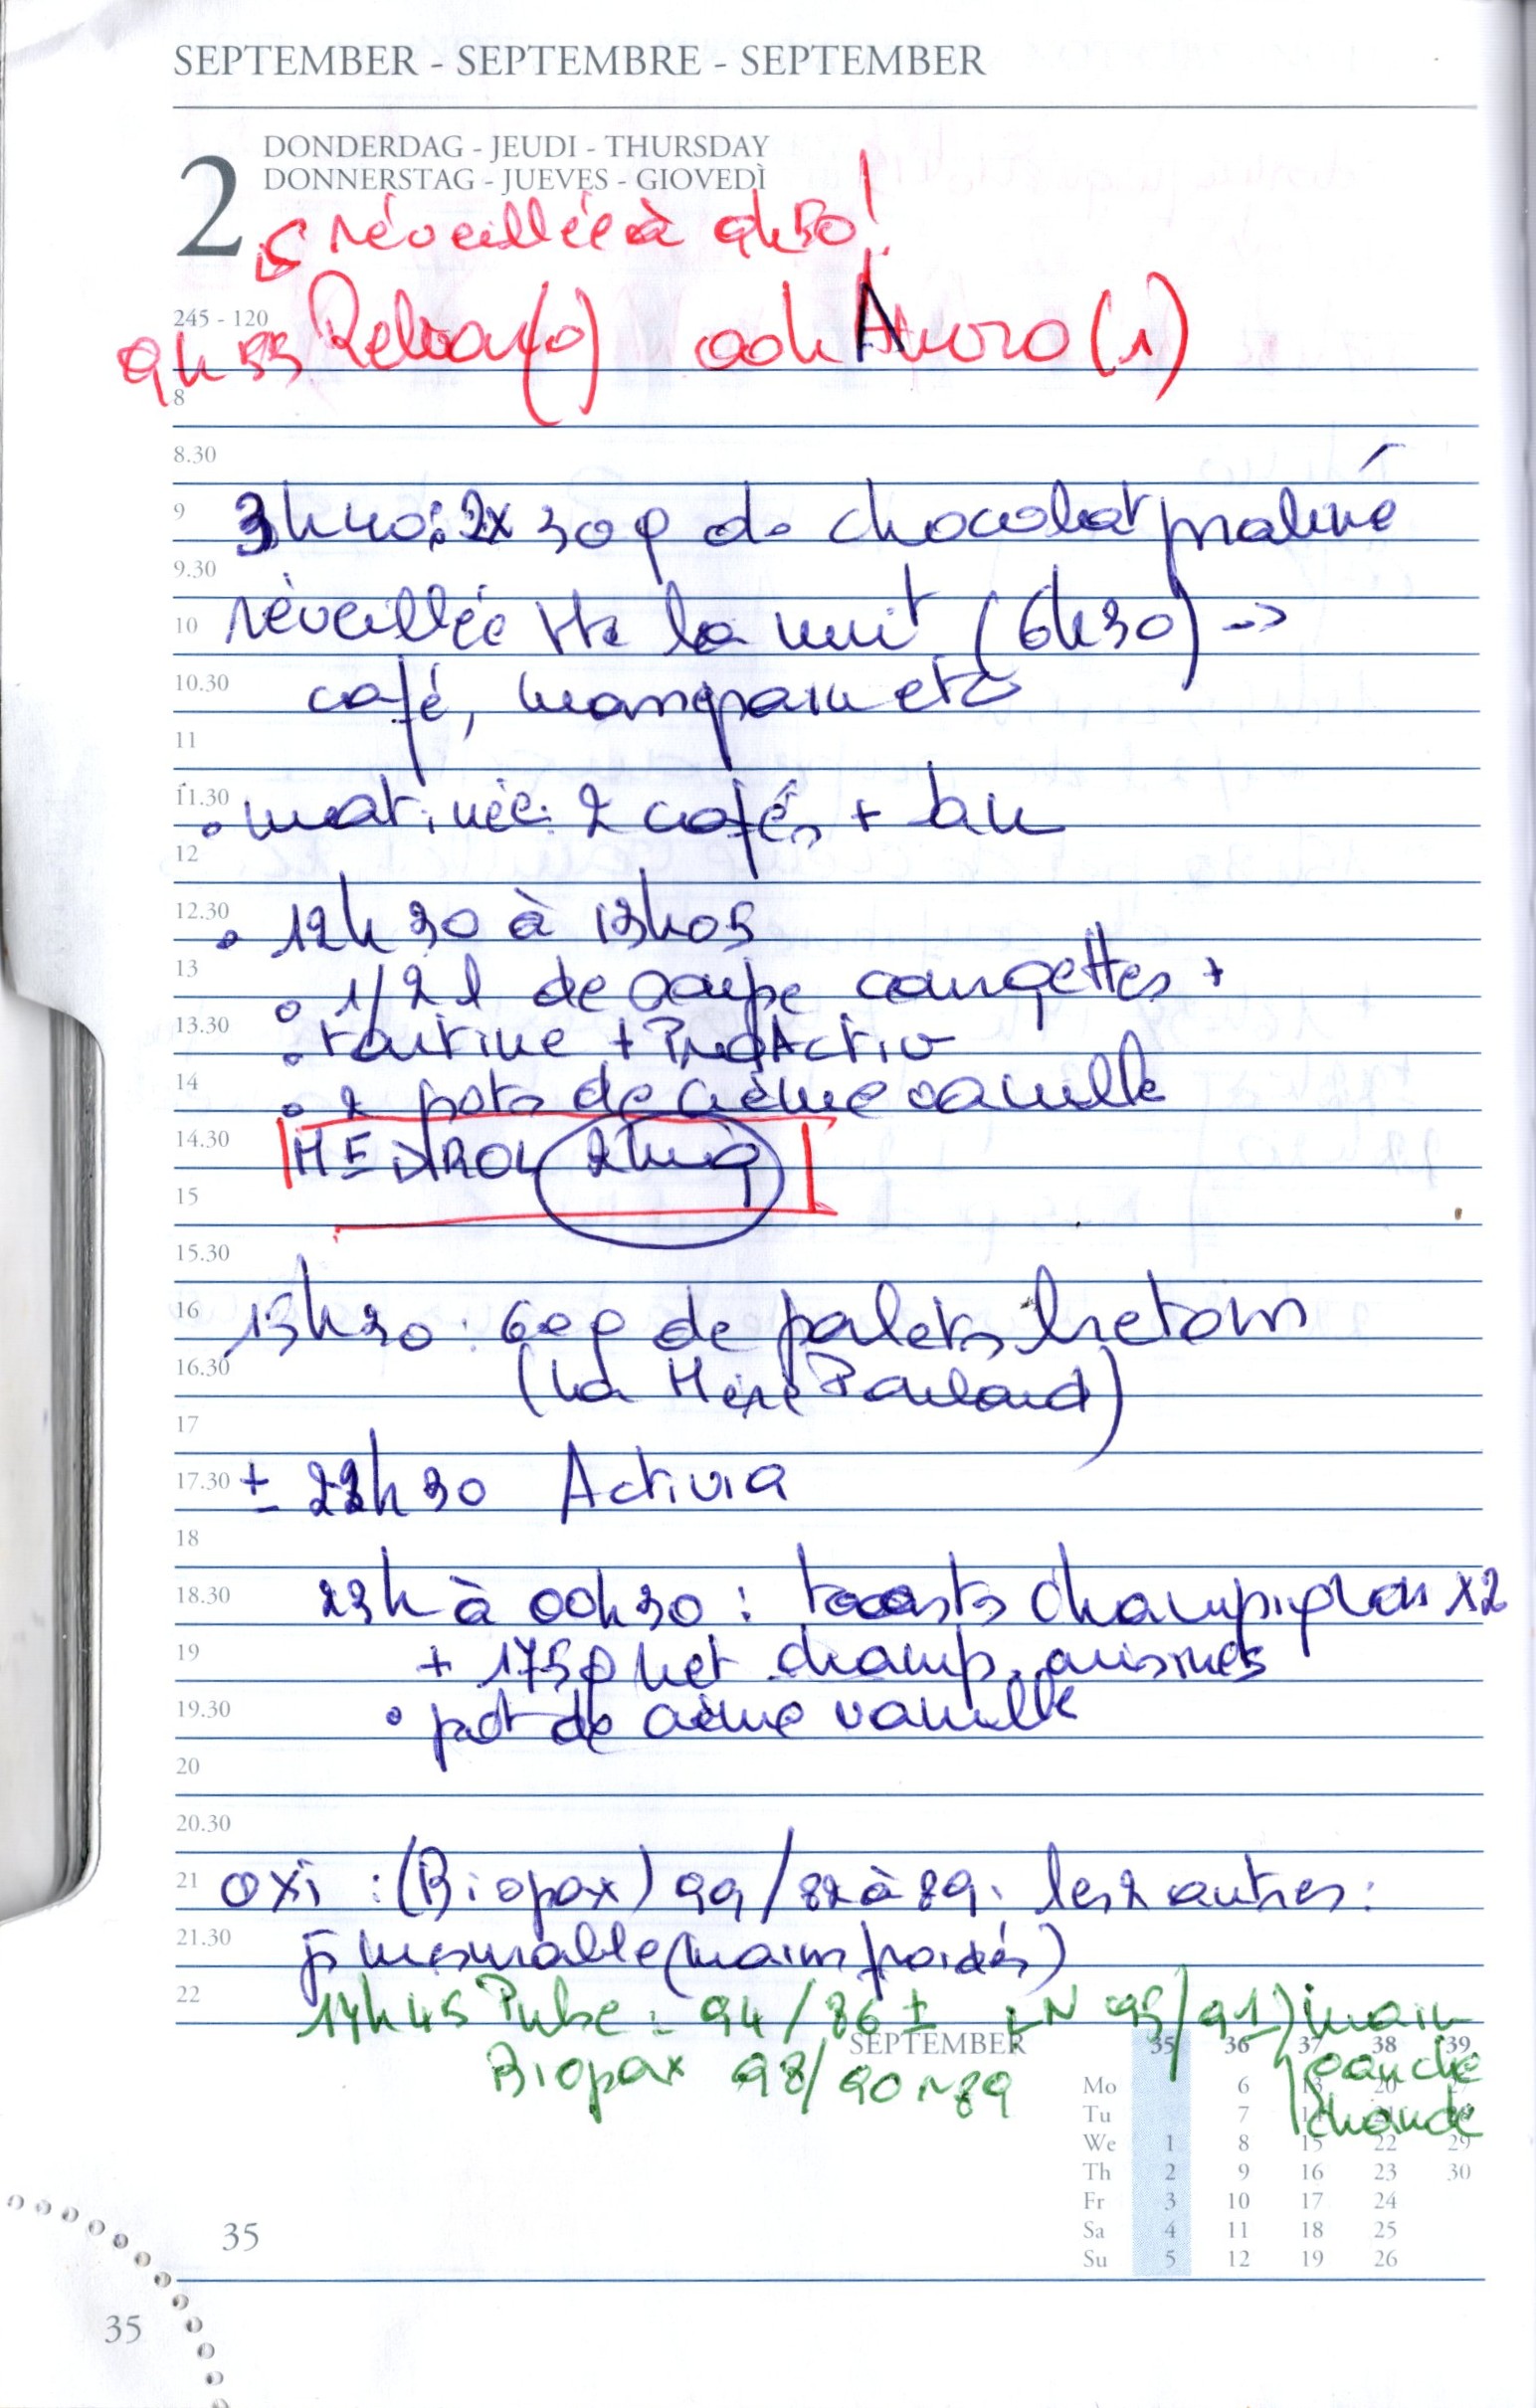 SEPTEMBER - SEPTEMBRE - SEPTEMBER
2
DONDERDAG - JEUDI - THURSDAY
DONNERSTAG - JUEVES - GIOVEDÌ
réveillée à 9h50!
245 - 120
9h55 (1)
8
8.30
9 3h40: 2x 30g de chocolat praliné
9.30
10 réveillée tte la nuit (6h30) ->
10.30 café, etc
11
11.30 • matinée: 2 cafés +
12
12.30 • 12h30 à 13h05
13 • 1/2 l de soupe courgettes +
13.30 • tartine + ProActiv
14 • 2 pots de crème vanille
14.30 MEDROL
15
15.30
16 13h20: 60g de palets bretons
16.30 (La Mère Poulard)
17
17.30 ± 22h30 Activia
18
18.30 23h à 00h30: toasts champignons x2
19 + 175g net champ. cuisinés
19.30 • pot de crème vanille
20
20.30
21 oxi: (Biopox) 99/82 à 89. les 2 autres:
21.30 mesurable (mains froides)
22 17h45 Pulse: 94/86 ± LN 95/91) main
gauche
chaude
Biopax 98/90 ~ 89
SEPTEMBER 35 36 37 38 39
Mo 6 13 20 27
Tu 7 14 21 28
We 1 8 15 22 29
Th 2 9 16 23 30
Fr 3 10 17 24
Sa 4 11 18 25
Su 5 12 19 26
35
35